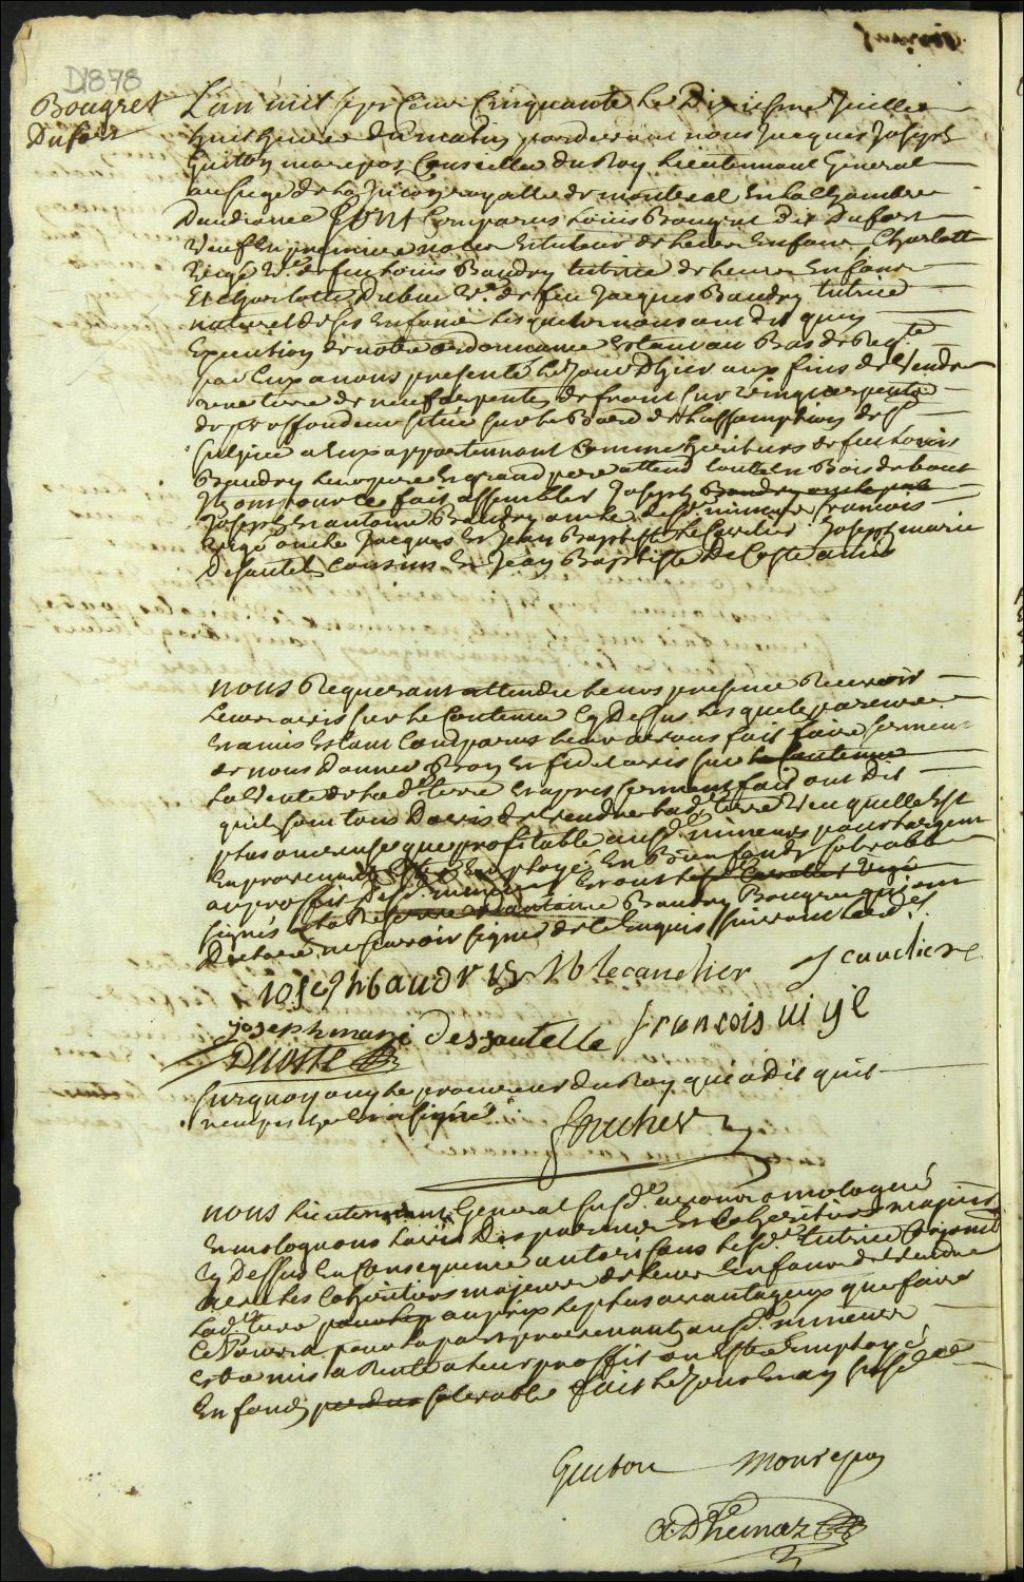 D1878
Bougret
Dufort
L'an mil sept Cent Cinquante Le Dixiesme Juillet
huit heures du matin pardevant nous Jacques Joseph
Guiton monrepos Conseiller du Roy Lieutennant General
au siege de la Jur.on royalle de montreal En la Chambre
Daudiance Sont Comparus Louis Bougret dit Dufort
veuf En premiere noces Et tuteur de leurs Enfans, Charlotte
Vegé V.e de feu Louis Baudry tutrice de leurs Enfans
Et Charlotte Dubuc V.e de feu Jacques Baudry tutrice
naturel de ses Enfans Lesquels nous ont dit qu'en
Execution de notre ordonnance Estant au Bas de Req.te
par Eux a nous presenté Le Jour D'hier aux fins de Vendre
une terre de neuf arpents de front sur vingt arpents
de proffondeur située sur le Bord de Lassomption de S.t
Sulpice a Eux appartenant Comme heritiers de feu Louis
Baudry leur pere Et grand pere attend toute En Bois debout
Ils ont pour ce fait assembler Joseph Baudry oncle pat
Joseph Et antoine Baudry oncle desd. mineurs francois
Vegé oncle Jacques Et Jean Baptiste Le Cavelier Joseph marie
Desautels Cousins Et Jean Baptiste DeCoste amis
nous Requerant attendu leurs presence Recevoir
leurs avis sur le Contenu Cy Dessus Lesquels parens
Et amis Estant Comparus leur avons fait faire serment
de nous Donner Bon Et fidel avis sur le Contenu
La Vente de lad.e terre Et apres serment fait ont dit
quils sont tous Davis de vendre lad.e terre vû quelle Est
plus onereuse que profitable ausd.s mineurs pour Largent
En provenant Estre Employé En Bien fonds solvable
au proffit desd. mineurs Et ont Lesd. Cavelier Vegé
signés a la Reserve d'antoine Baudry Bougret qui ont
Declaré ne sçavoir signer de ce Enquis suivant Lord.
joseph baudry JB lecauelier J cauelier
joseph marie dessautelle francois uigé
Decoste
Surquoy ouy le procureur du Roy qui a dit quil
n'empesche Et a signé
foucher
nous Lieutennant General susd. avons omologué
Et mologuons Lavis Des parens Et Coheritiers majeurs
Cy Dessus En Consequence autorisons lesd. tutrice Conjoint
avec les Coheritiers majeurs de leurs Enfans de vendre
lad.e terre pour les au prix le plus avantageux que faire
Ce Pourra pour la part provenant ausd.s mineurs
Estre mis a Rente a leur proffit ou Estre Employé
En fonds perdus solvable fait Les Jour Et an susd.
Guiton Monrepos
Dhemaz